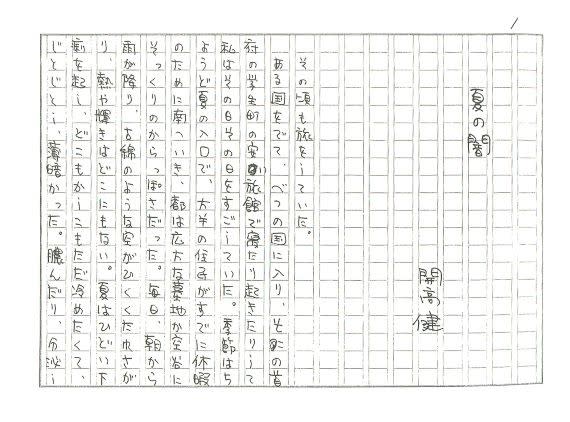 1
夏の闇
開高健
その頃も旅をしていた。
ある国をでて、べつの国に入り、そこの首
府の学生町の安い旅館で寝たり起きたりして
私はその日その日をすごしていた。季節はち
ょうど夏の入口で、大半の住民がすでに休暇
のために南へいき、都は広大な墓地か空谷に
そっくりのからっぽさだった。毎日、朝から
雨が降り、古綿のような空がひくくたれさが
り、熱や輝きはどこにもない。夏はひどい下
痢を起し、どこもかしこもただ冷めたくて、
じとじとし、薄暗かった。膿んだり、分泌し